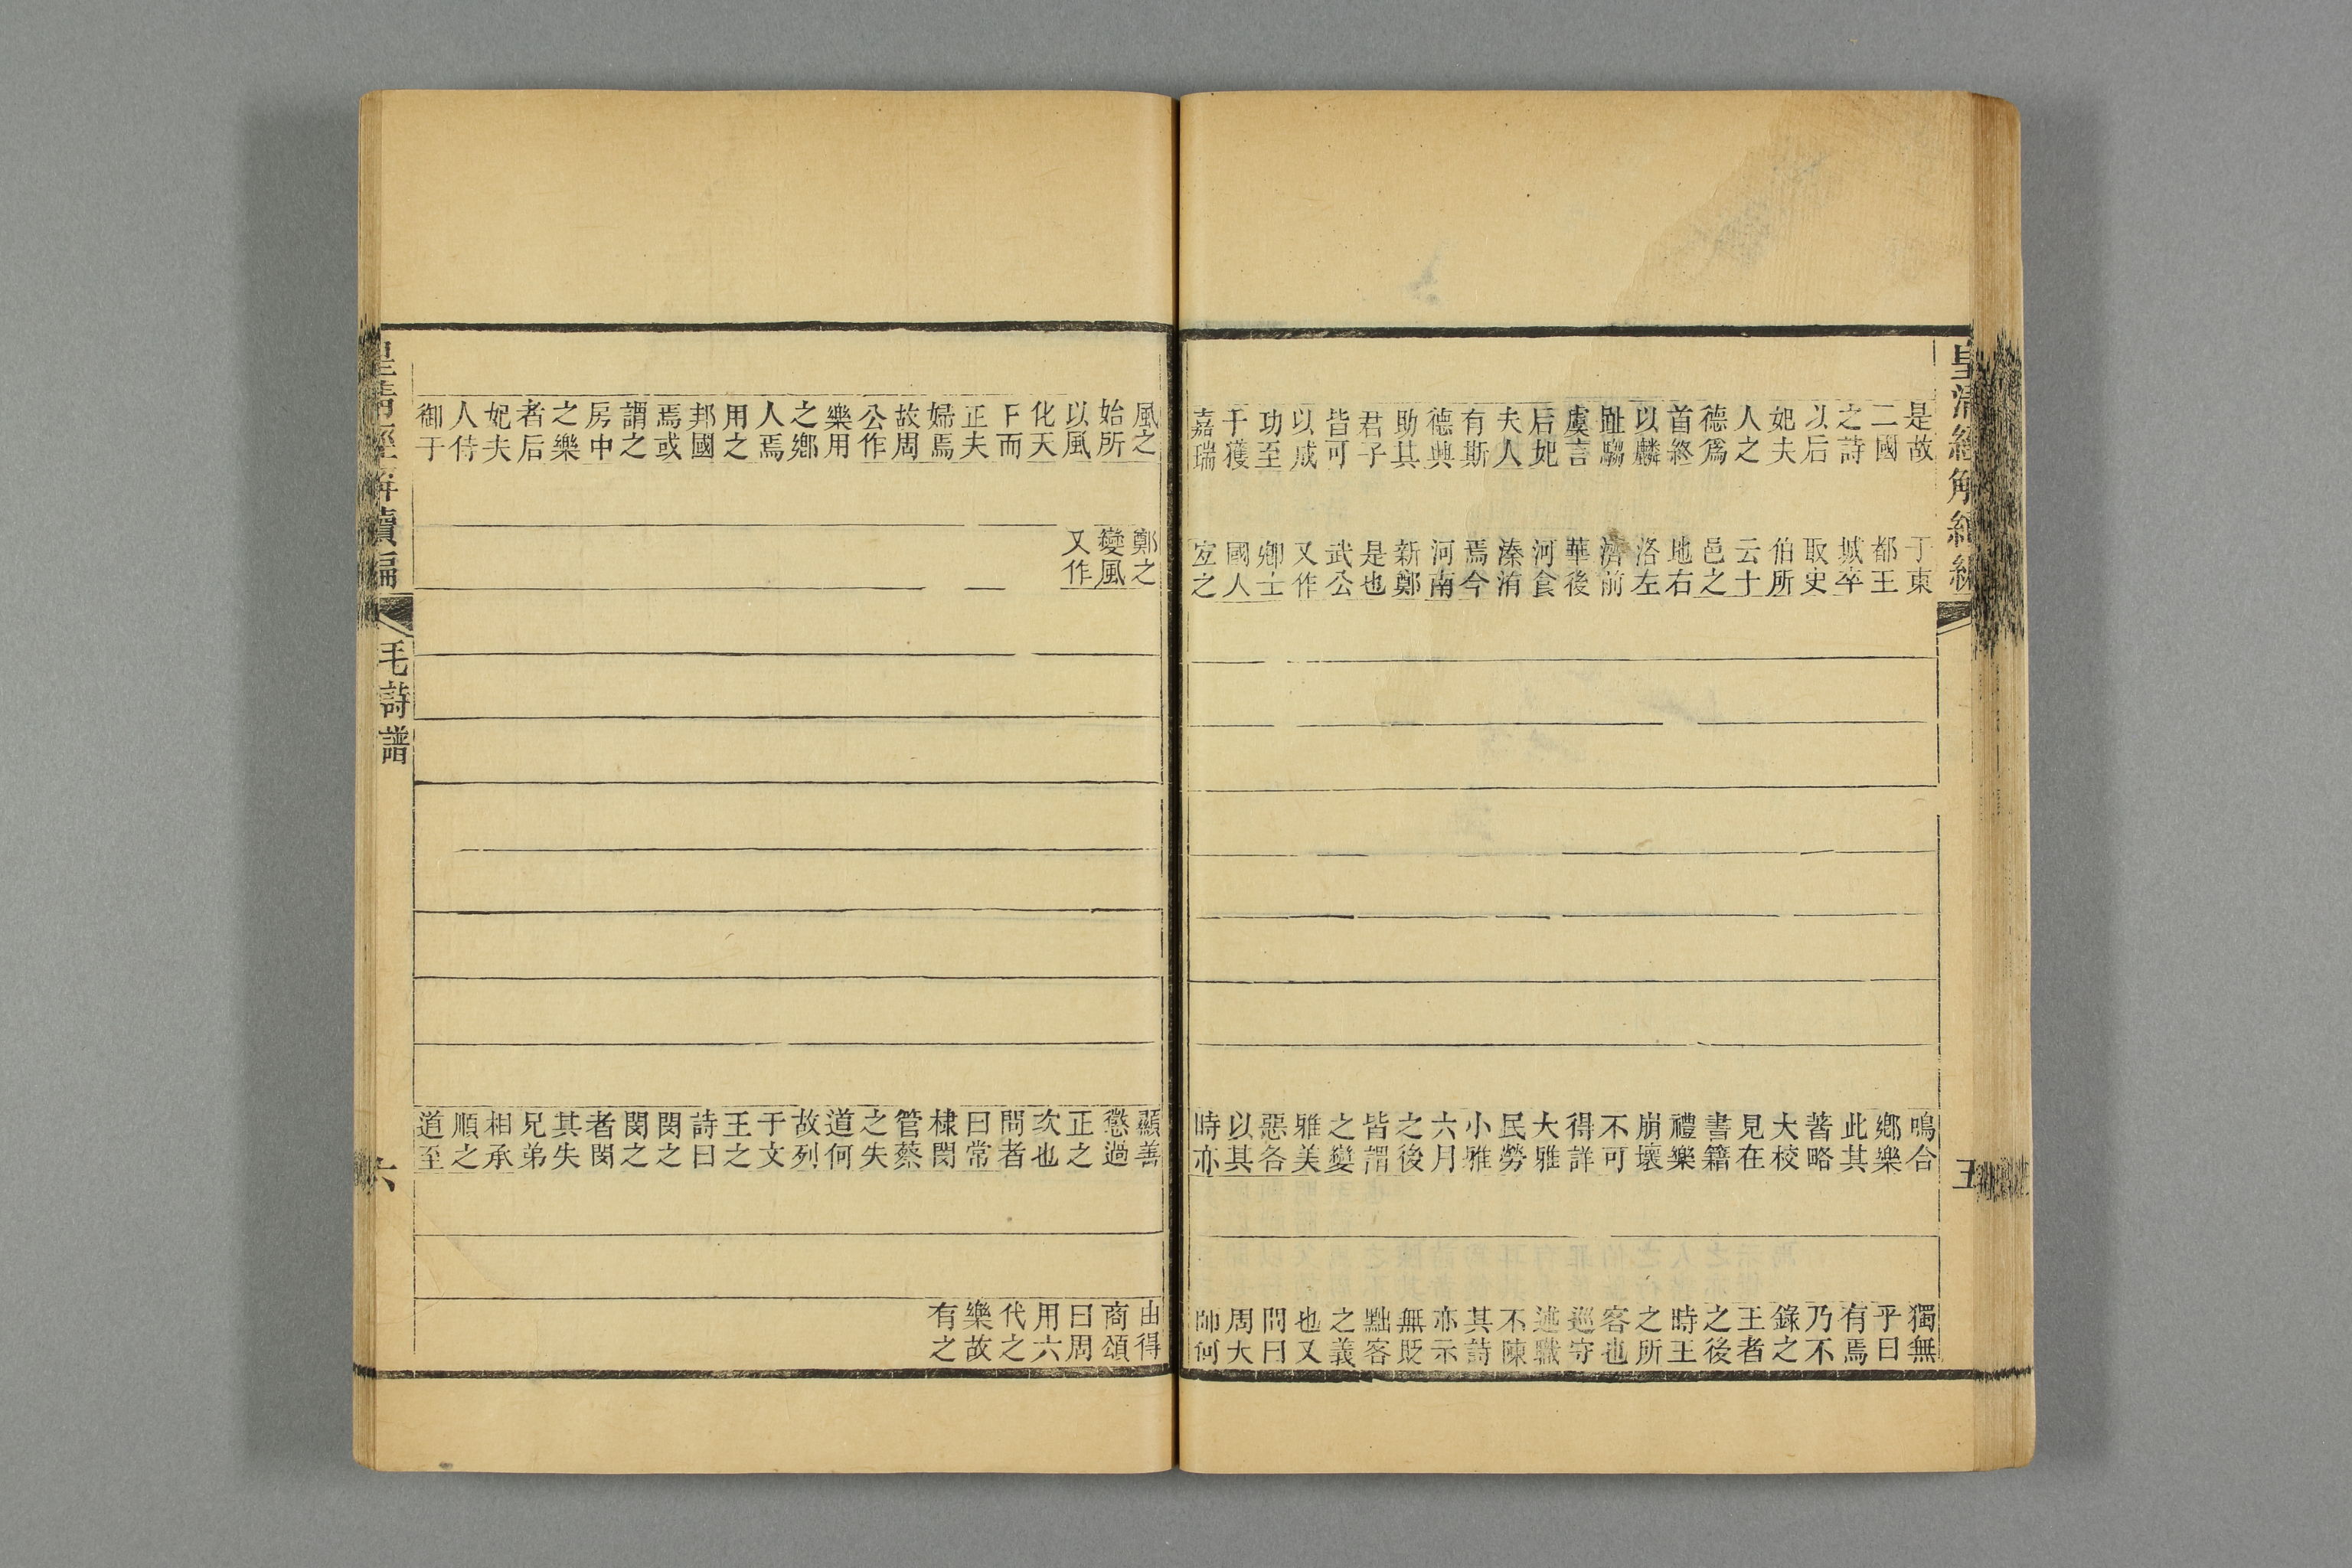 皇清經解續編
五
是故二國之詩以后妃夫人之德爲首終以麟趾騶虞言后妃夫人有斯德興助其君子皆可以成功至于獲嘉瑞
于東都王城卒取史伯所云十邑之地右洛左濟前華後河食溱洧焉今河南新鄭是也武公又作卿士國人宐之
鳴合鄉樂此其著略大校見在書籍禮樂崩壞不可得詳大雅民勞小雅六月之後皆謂之變雅美惡各以其時亦
獨無乎曰有焉乃不錄之王者之後時王之所客也巡守述職不陳其詩亦示無貶黜客之義也又問曰周大師何
風之始所以風化天下而正夫婦焉故周公作樂用之鄉人焉用之邦國焉或謂之房中之樂者后妃夫人侍御于
鄭之變風又作
顯善懲過正之次也問者曰常棣閔管蔡之失道何故列于文王之詩曰閔之閔之者閔其失兄弟相承順之道至
由得商頌曰周用六代之樂故有之
皇清經解續編
毛詩譜
六